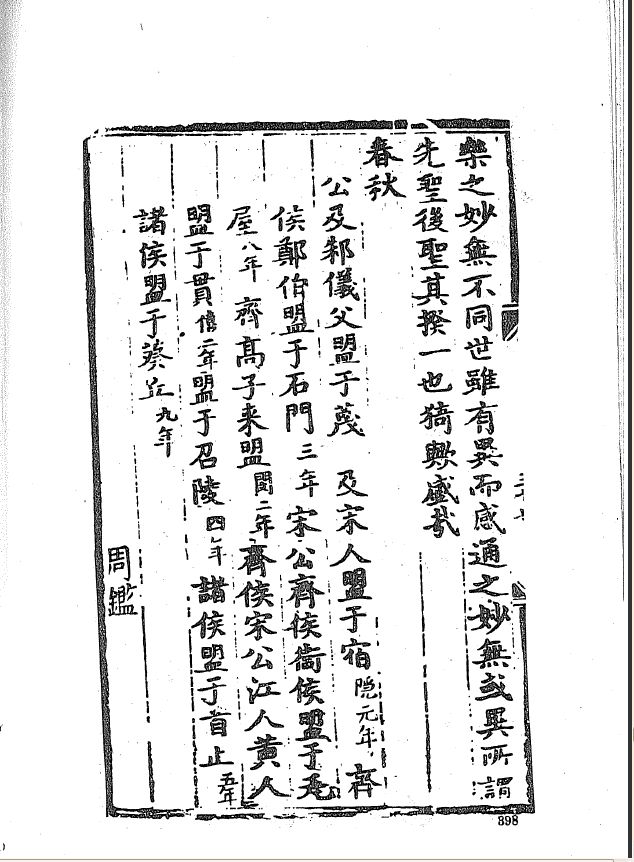 樂之妙無不同世雖有異而感通之妙無或異所謂
先聖後聖其揆一也猗歟盛哉
春秋
公及邾儀父盟于蔑 及宋人盟于宿隠元年 齊
侯鄭伯盟于石門三年宋公齊侯衞侯盟于瓦
屋八年齊髙子来盟閔二年齊侯宋公江人黄人
盟于貫僖二年盟于召陵四年諸侯盟于首止五年
諸侯盟于葵丘九年
周鑑
398